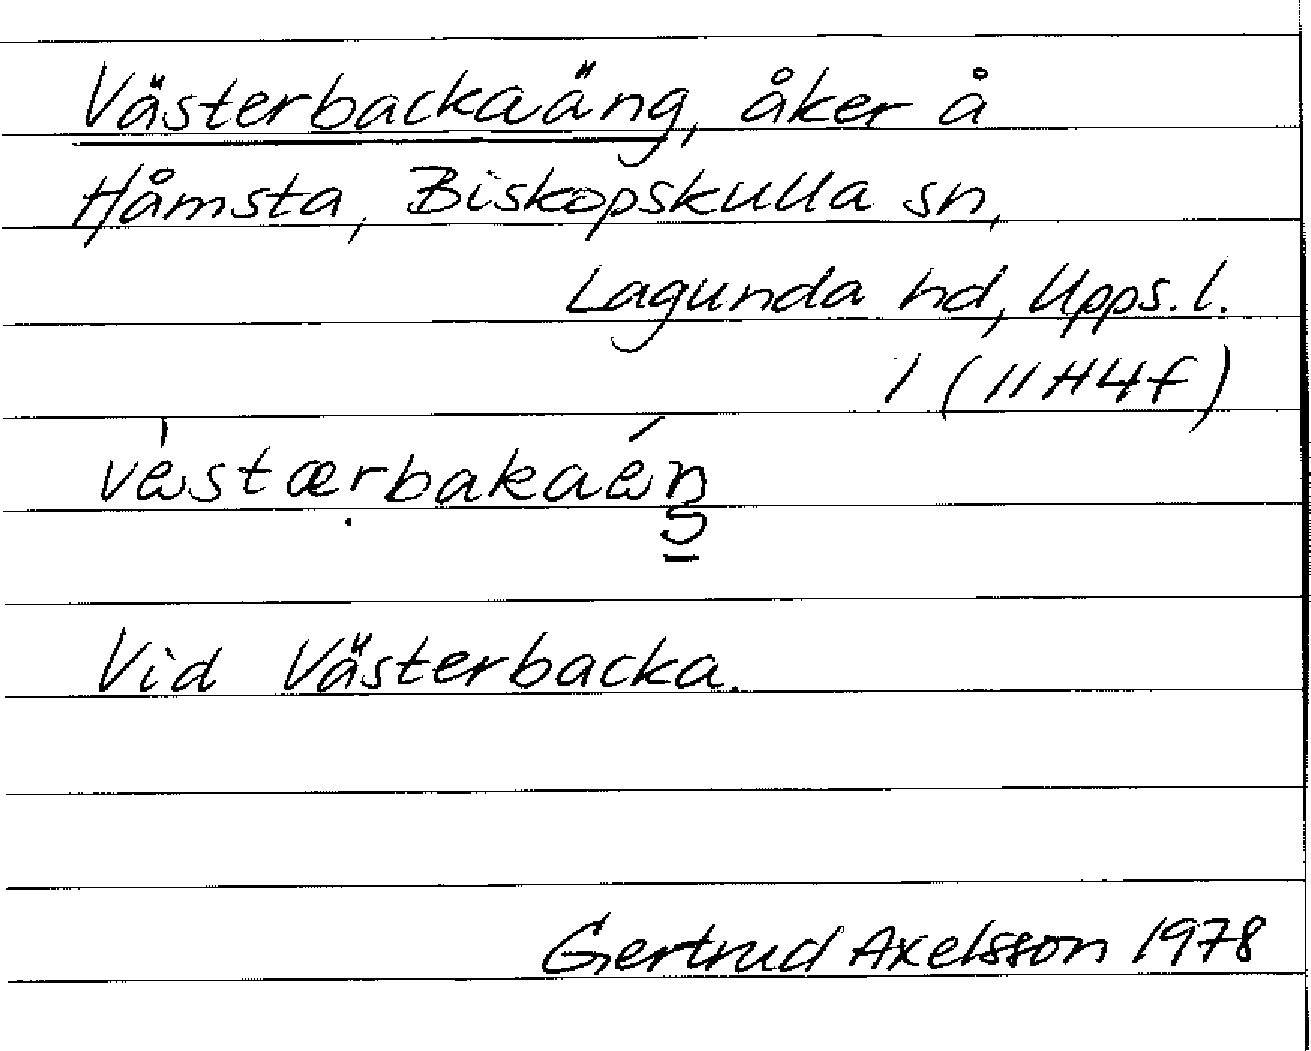 Västerbackaäng, åker å
Håmsta, Biskopskulla sn,
Lagunda hd, Upps. l.
1 (11H4f)
Vid Västerbacka.
Gertrud Axelsson 1978